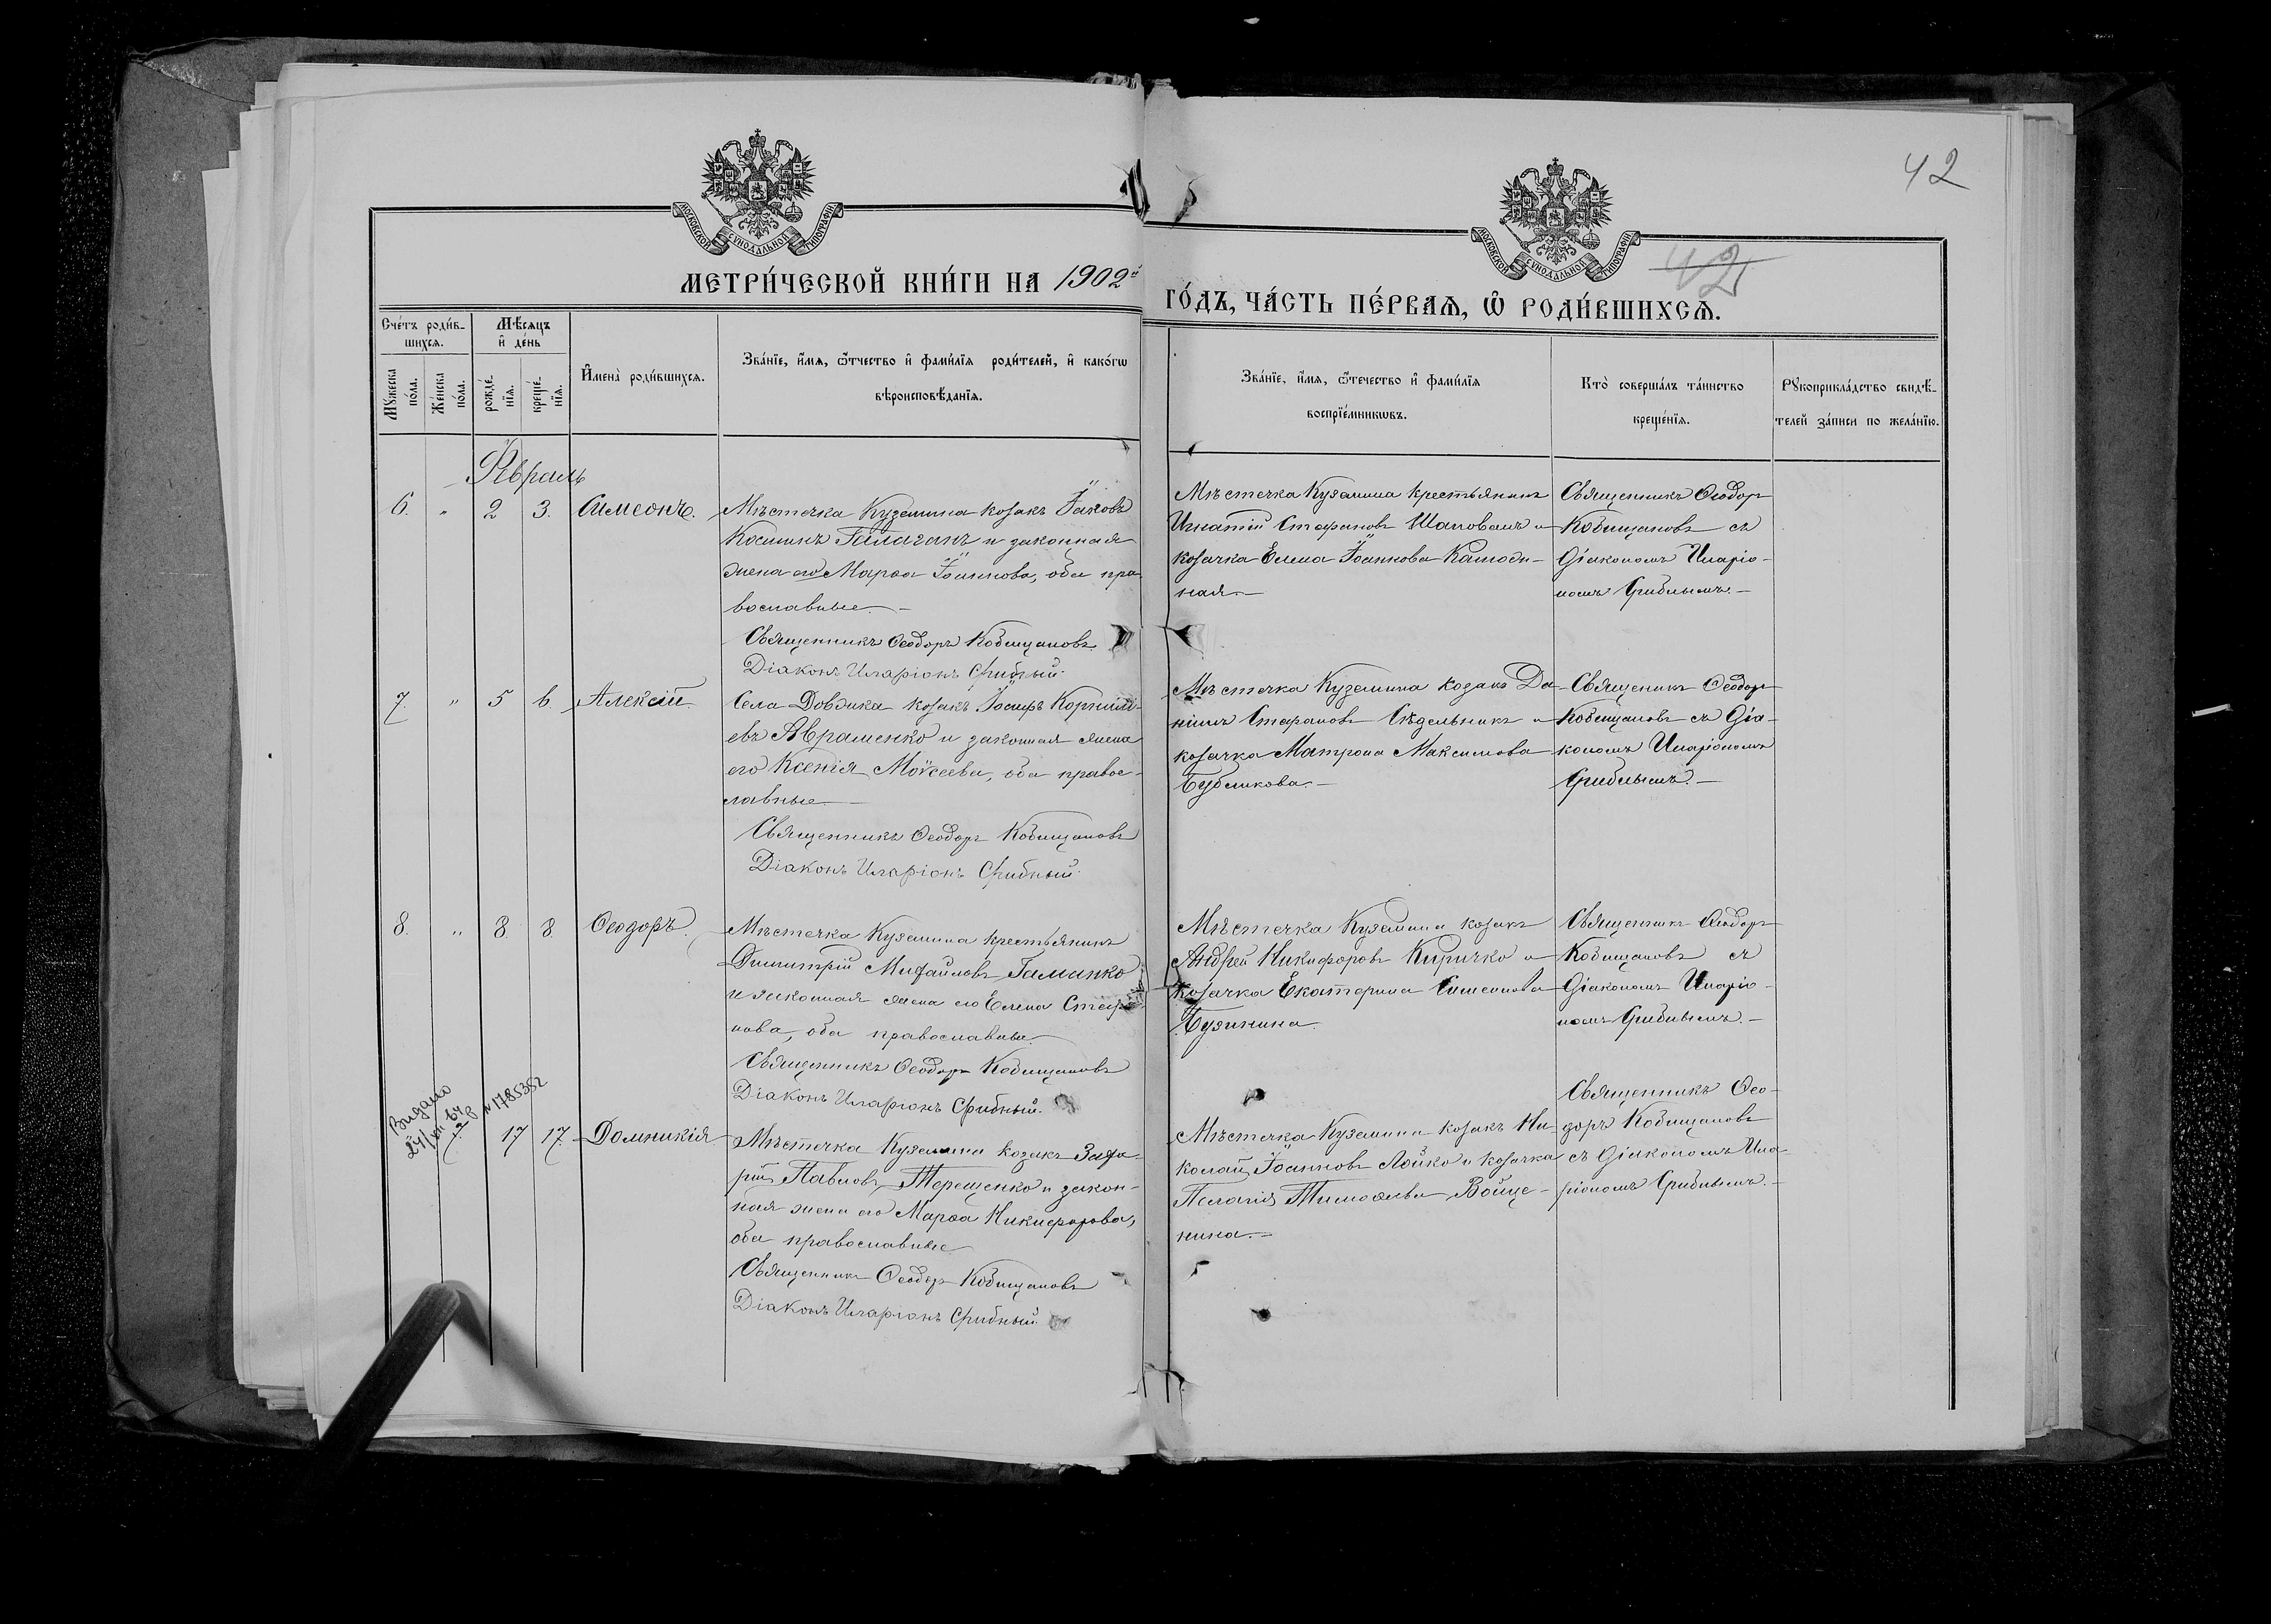 42
МОСКОВСКОЙ СУНОДАЛЬНОЙ ТИПОГРАФІИ
МОСКОВСКОЙ СУНОДАЛЬНОЙ ТИПОГРАФІИ
42
МЕТРИ́ЧЕСКОЙ КНИ́ГИ НА 1902й
ГО́ДЪ, ЧА́СТЬ ПЕ́РВАѦ, Ѡ҆ РОДИ́ВШИХСѦ.
Сче́тъ роди́в-
шихсѧ.
Мѣ́сѧцъ
и҆ де́нь
Мꙋ́жеска
по́ла.
Же́нска
по́ла.
рожде́-
нїѧ.
креще́-
нїѧ.
И҆мена̀ роди́вшихсѧ.
Зва́нїе, и҆́мѧ, ѻ҆́тчество и҆ фами́лїѧ роди́телей, и҆ како́гѡ
вѣроисповѣ́данїѧ.
Зва́нїе, и҆́мѧ, ѻ҆́течество и҆ фами́лїѧ
воспрїе́мникѡвъ.
Кто̀ соверша́лъ та́инство
креще́нїѧ.
Рꙋкоприкла́дство свидѣ́-
телей за́писи по жела́нїю.
Февраль
6. " 2 3. Симеонъ.
Мѣстечка Куземина козакъ Іаковъ
Косминъ Галаганъ и законная
жена его Марѳа Іоаннова, оба пра-
вославные
Священникъ Ѳеодоръ Кобищановъ
Діаконъ Иларіонъ Срибный.
Мѣстечка Куземина крестьянинъ
Игнатій Стефановъ Шаповалъ и
козачка Елена Іоаннова
ная.
Священникъ Ѳеодоръ
Кобищановъ съ
діакономъ Иларіо-
номъ Срибнымъ.
7. " 5 6. Алексій.
Села Довжика козакъ Іосифъ Корнилі-
евъ Авраменко и законная жена
его Ксенія Моѵсеева, оба правос-
лавные
Священникъ Ѳеодоръ Кобищановъ
Діаконъ Иларіонъ Срибный.
Мѣстечка Куземина козакъ Да-
ніилъ Стефановъ Сѣдельникъ и
козачка Матрона Максимова
Бубликова.
Священникъ Ѳеодоръ
Кобищановъ съ діа-
кономъ Иларіономъ
Срибнымъ.
8. " 8. 8. Ѳеодоръ.
Мѣстечка Куземина крестьянинъ
Димитрій Михайловъ Гаманко
и законная жена его Елена Стефа-
нова, оба православные
Священникъ Ѳеодоръ Кобищановъ
Діаконъ Иларіонъ Срибный.
Мѣстечка Куземина козакъ
Андрей Никифоровъ Киричко и
козачка Екатерина Симеонова
Бузинина.
Священникъ Ѳеодоръ
Кобищановъ съ
діакономъ Иларіо-
номъ Срибнымъ.
Видано
№ 1785352
17 17. Домникія
Мѣстечка Куземина козакъ Заха-
рій Павловъ Терещенко и закон-
ная жена его Марѳа Никифорова,
оба православные
Священникъ Ѳеодоръ Кобищановъ
Діаконъ Иларіонъ Срибный.
Мѣстечка Куземина козакъ Ни-
колай Іоанновъ Лойко и козачка
Пелагія Тимоѳеева Войце-
нина.
Священникъ Ѳео-
доръ Кобищановъ
съ діакономъ Ила-
ріономъ Срибнымъ.